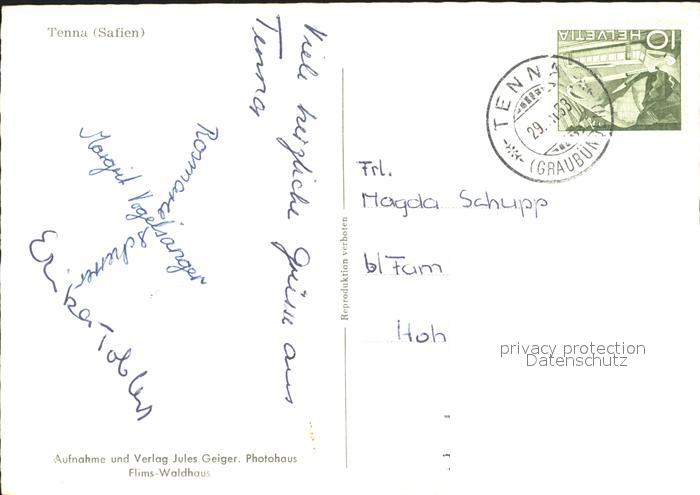 Tenna (Safien)
Viele herzliche Grüsse aus
Tenna
Rosmarie Scherrer
Margrit Vogelsanger
Erika Tobler
Aufnahme und Verlag Jules Geiger. Photohaus
Flims-Waldhaus
Reproduktion verboten
HELVETIA
10
TENNA
29.
53
(GRAUBÜN
Frl.
Magda Schupp
b/Fam
Hoh
privacy protection
Datenschutz